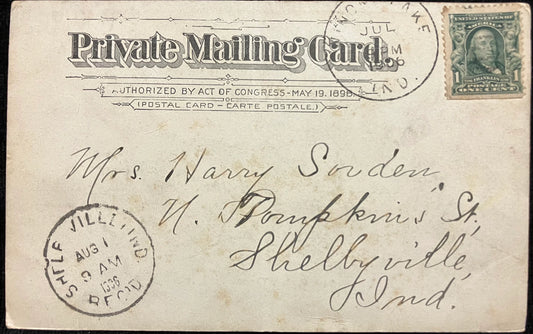 Private Mailing Card.
AUTHORIZED BY ACT OF CONGRESS-MAY 19, 1898.
(POSTAL CARD - CARTE POSTALE.)
LAKE
JUL
M
1906
IND.
1 1
FRANKLIN
POSTAGE
ONE CENT
Mrs. Harry Sowden,
N. Tompkins St,
Shelbyville,
Ind.
SHELBYVILLE, IND.
AUG 1
9 AM
1906
REC'D